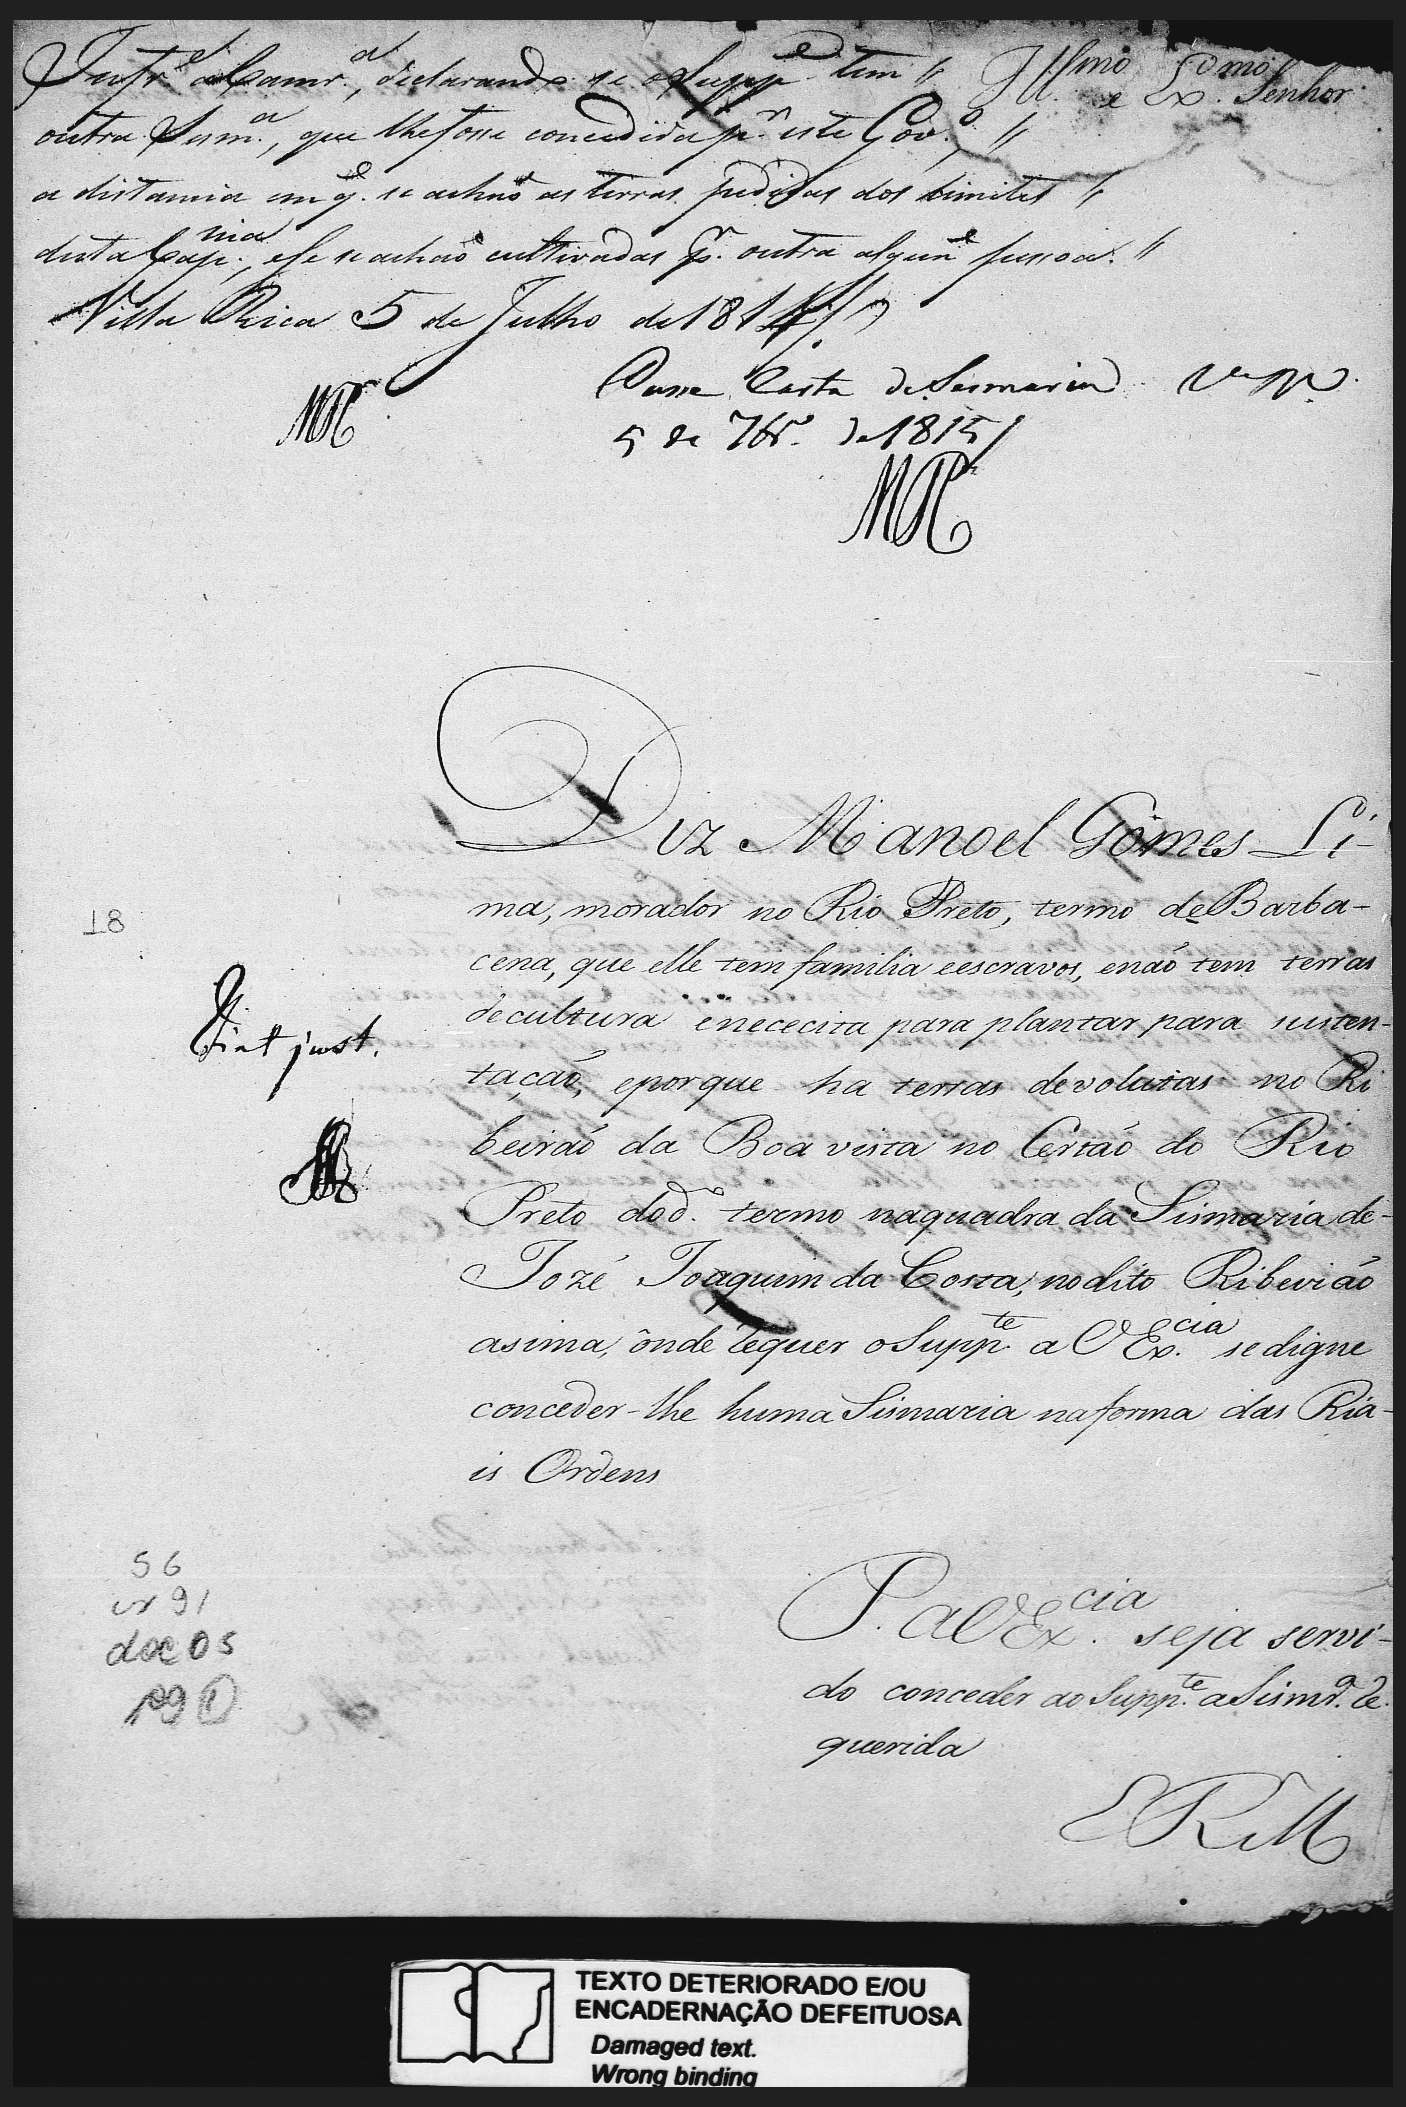 Infr.e a Camr.a, declarando se o Supp.e tem //
Ill.mo e Ex.mo Senhor
outra Sesm.a, que lhe fosse concedida p.r este Gov.o, //
a distancia em q. se achaõ as terras pedidas dos Limites //
desta Cap.nia, e se se achaõ cultivadas p.r outra algũa pessoa. //
Villa Rica 5 de Julho de 1814
Passe Carta de Sesmaria
5 de 7br.o de 1815
Diz Manoel Gomes Li-
ma, morador no Rio Preto, termo de Barba-
cena, que elle tem familia eescravos, enaõ tem terras
decultura enececita para plantar para susten-
taçaõ, eporque ha terras devolutas no Ri
beiraõ da Boa vista no Certaõ do Rio
Preto dod.o termo naquadra da Sismaria de-
Jozé Joaquim da Costa, nodito Ribeiraõ
asima, onde requer o Supp.te a V Ex.cia se digne
conceder-lhe huma Sismaria naforma das Ria-
is Ordens
18
Fiat just.
P. a V Ex.cia seja servi-
do conceder ao Supp.te a Sismr.a re-
querida
E R M
56
cx 91
doc 05
pg 1
TEXTO DETERIORADO E/OU
ENCADERNAÇÃO DEFEITUOSA
Damaged text.
Wrong binding